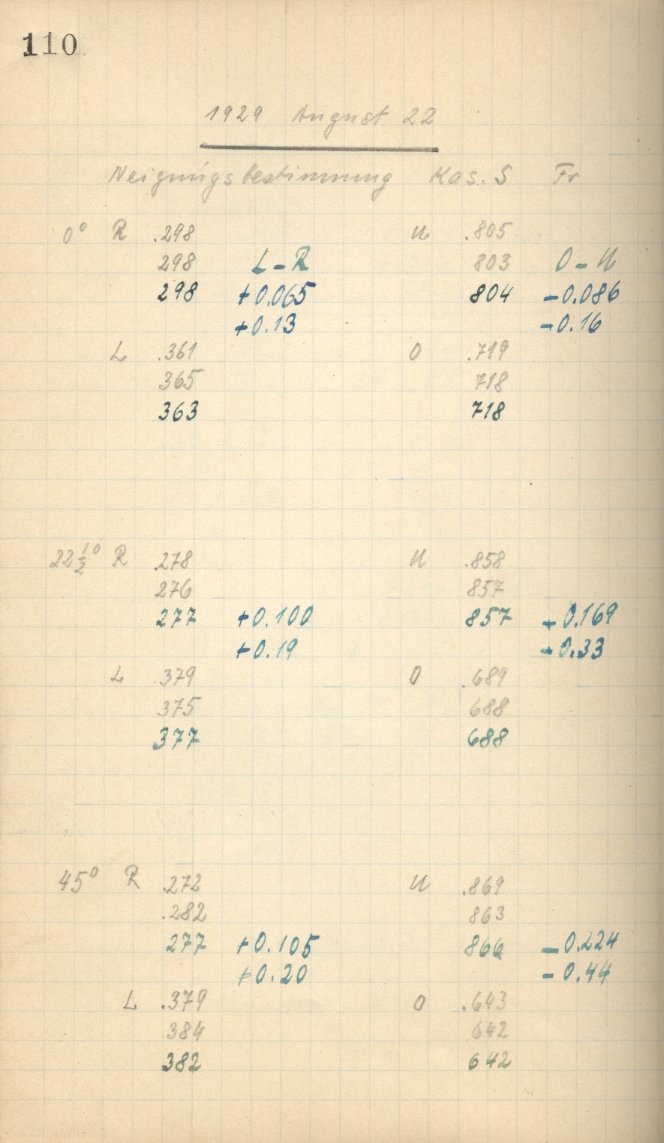 110
1929 August 22
Neigungsbestimmung Kas. S Fr
0° R .298 U .805
298 L-R 803 O-U
298 +0.065 804 -0.086
+0.13 -0.16
L .361 O .719
365 718
363 718
22½° R .278 U .858
276 857
277 +0.100 857 -0.169
+0.19 -0.33
L .379 O .689
375 688
377 688
45° R .272 U .869
.282 863
277 +0.105 866 -0.224
+0.20 -0.44
L .379 O .643
384 642
382 642